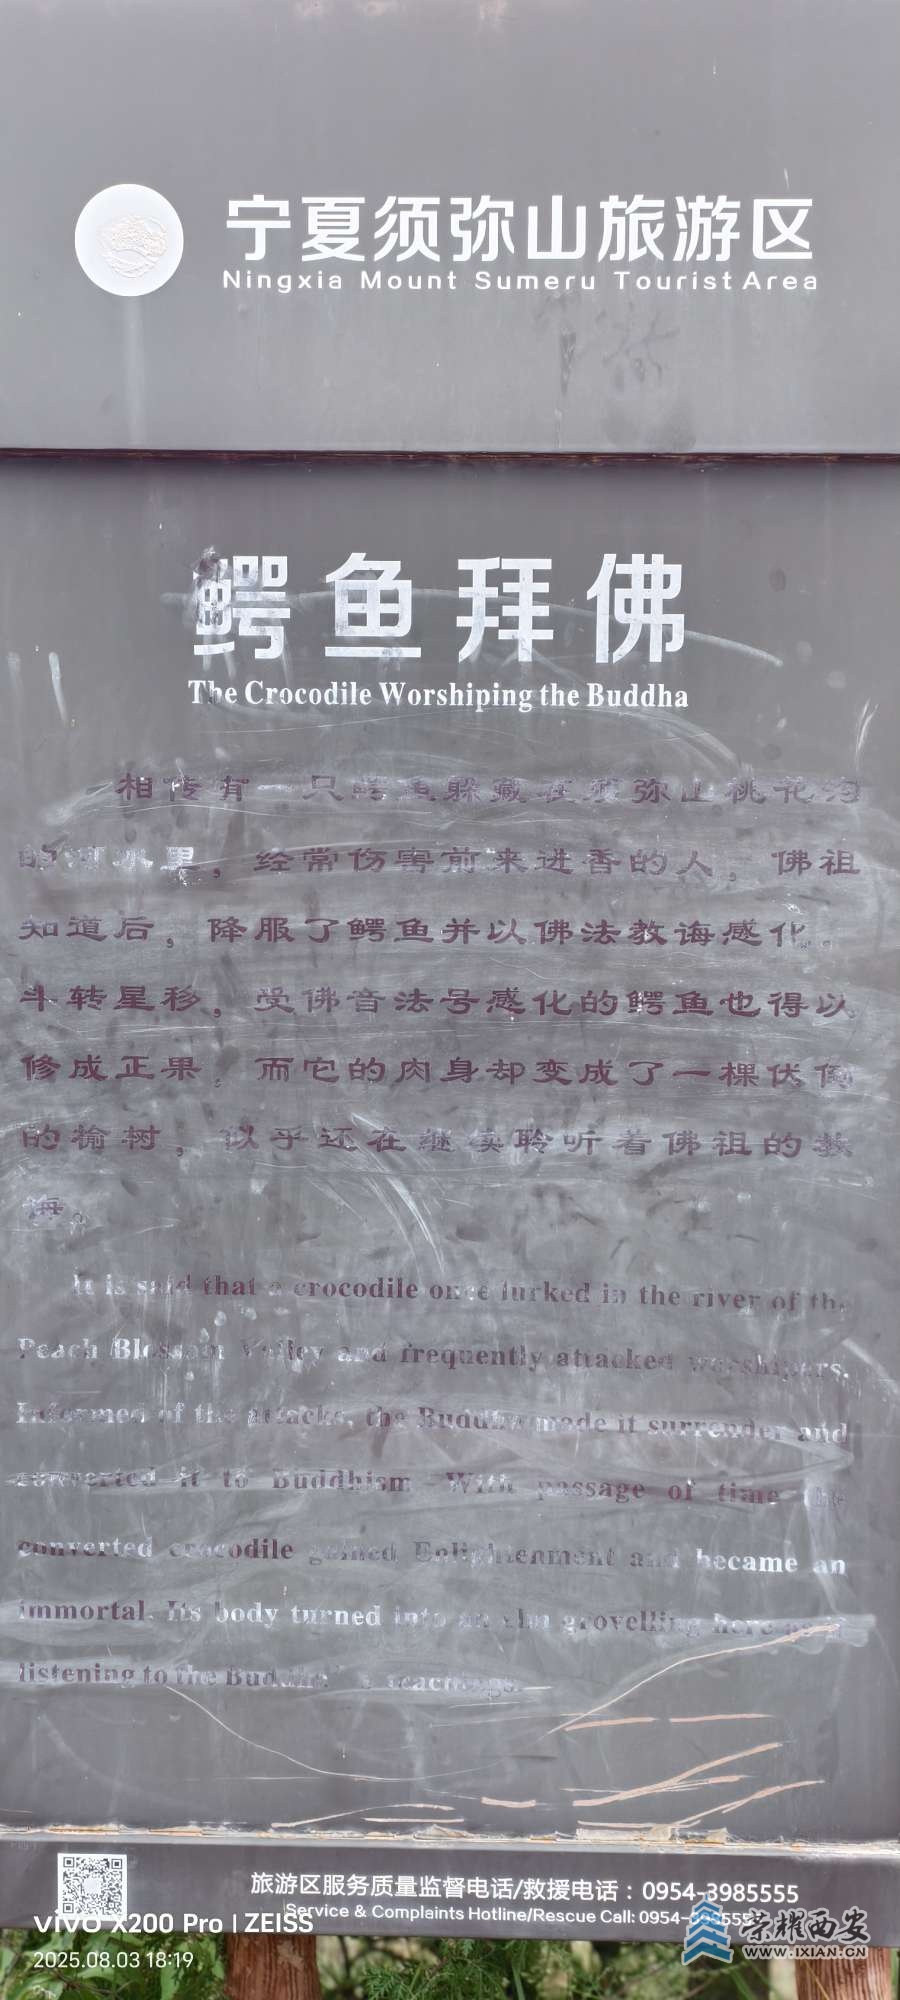 宁夏须弥山旅游区
Ningxia Mount Sumeru Tourist Area
鳄鱼拜佛
The Crocodile Worshiping the Buddha
相传有一只鳄鱼躲藏在须弥山桃花沟
的河水里，经常伤害前来进香的人，佛祖
知道后，降服了鳄鱼并以佛法教诲感化。
斗转星移，受佛音法号感化的鳄鱼也得以
修成正果，而它的肉身却变成了一棵伏倒
的榆树，似乎还在继续聆听着佛祖的教
诲。
It is said that a crocodile once lurked in the river of the
Peach Blossam Valley and frequently attacked worshipers.
Informed of the attacks, the Buddha made it surrender and
converted it to Buddhism. With passage of time the
converted crocodile gained Enlightenment and became an
immortal. Its body turned into an elm grovelling here as if
listening to the Buddha's teachings.
旅游区服务质量监督电话/救援电话：0954-3985555
Service & Complaints Hotline/Rescue Call: 0954-3985555
vivo X200 Pro | ZEISS
2025.08.03 18:19
荣耀西安
WWW.IXIAN.CN